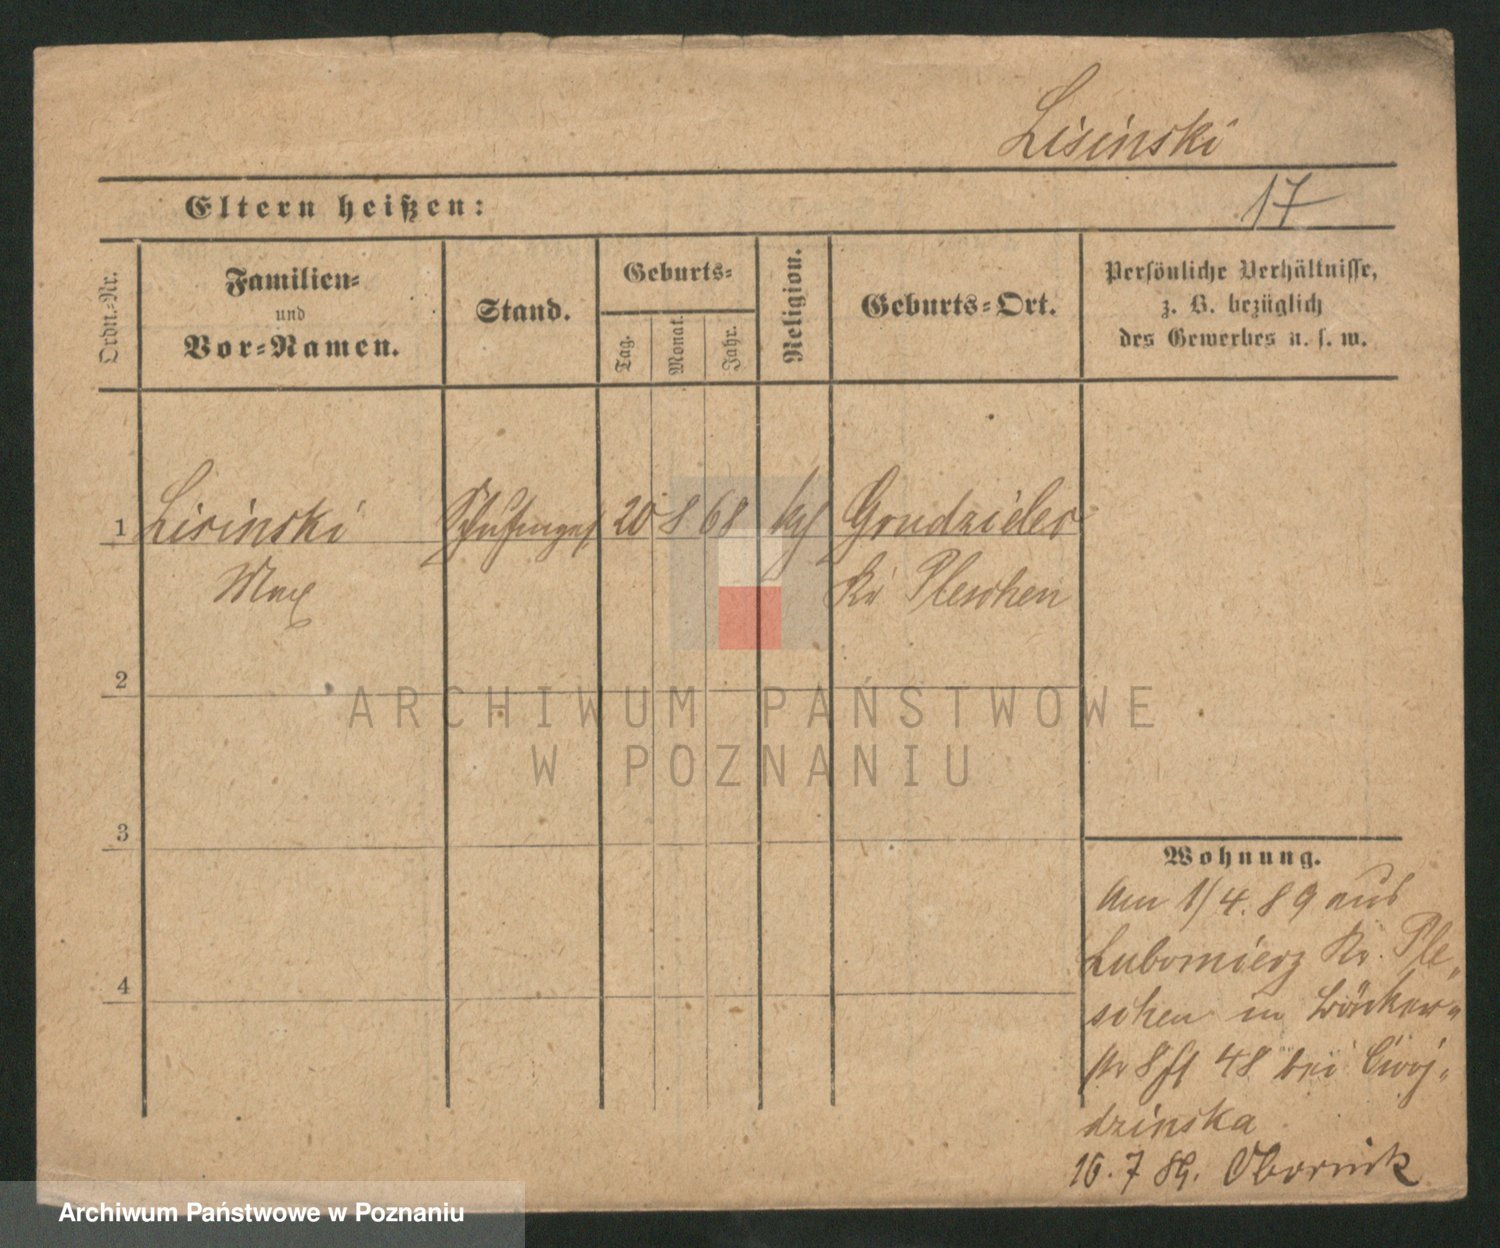 Lisinski
17
Eltern heißen:
Ordn.-Nr.
Familien-
und
Vor-Namen.
Stand.
Geburts-
Tag.
Monat.
Jahr.
Religion.
Geburts-Ort.
Persönliche Verhältnisse,
z. B. bezüglich
des Gewerbes u. s. w.
1 Lisinski 20 8 68 kth Grudzielec
Max Kr Pleschen
2
3
4
Wohnung.
Am 1/4. 89 aus
Lubomierz Kr. Ple-
schen in
48 bei Cwoj-
dzinska
16. 7 89. Obornik
ARCHIWUM PAŃSTWOWE
W POZNANIU
Archiwum Państwowe w Poznaniu